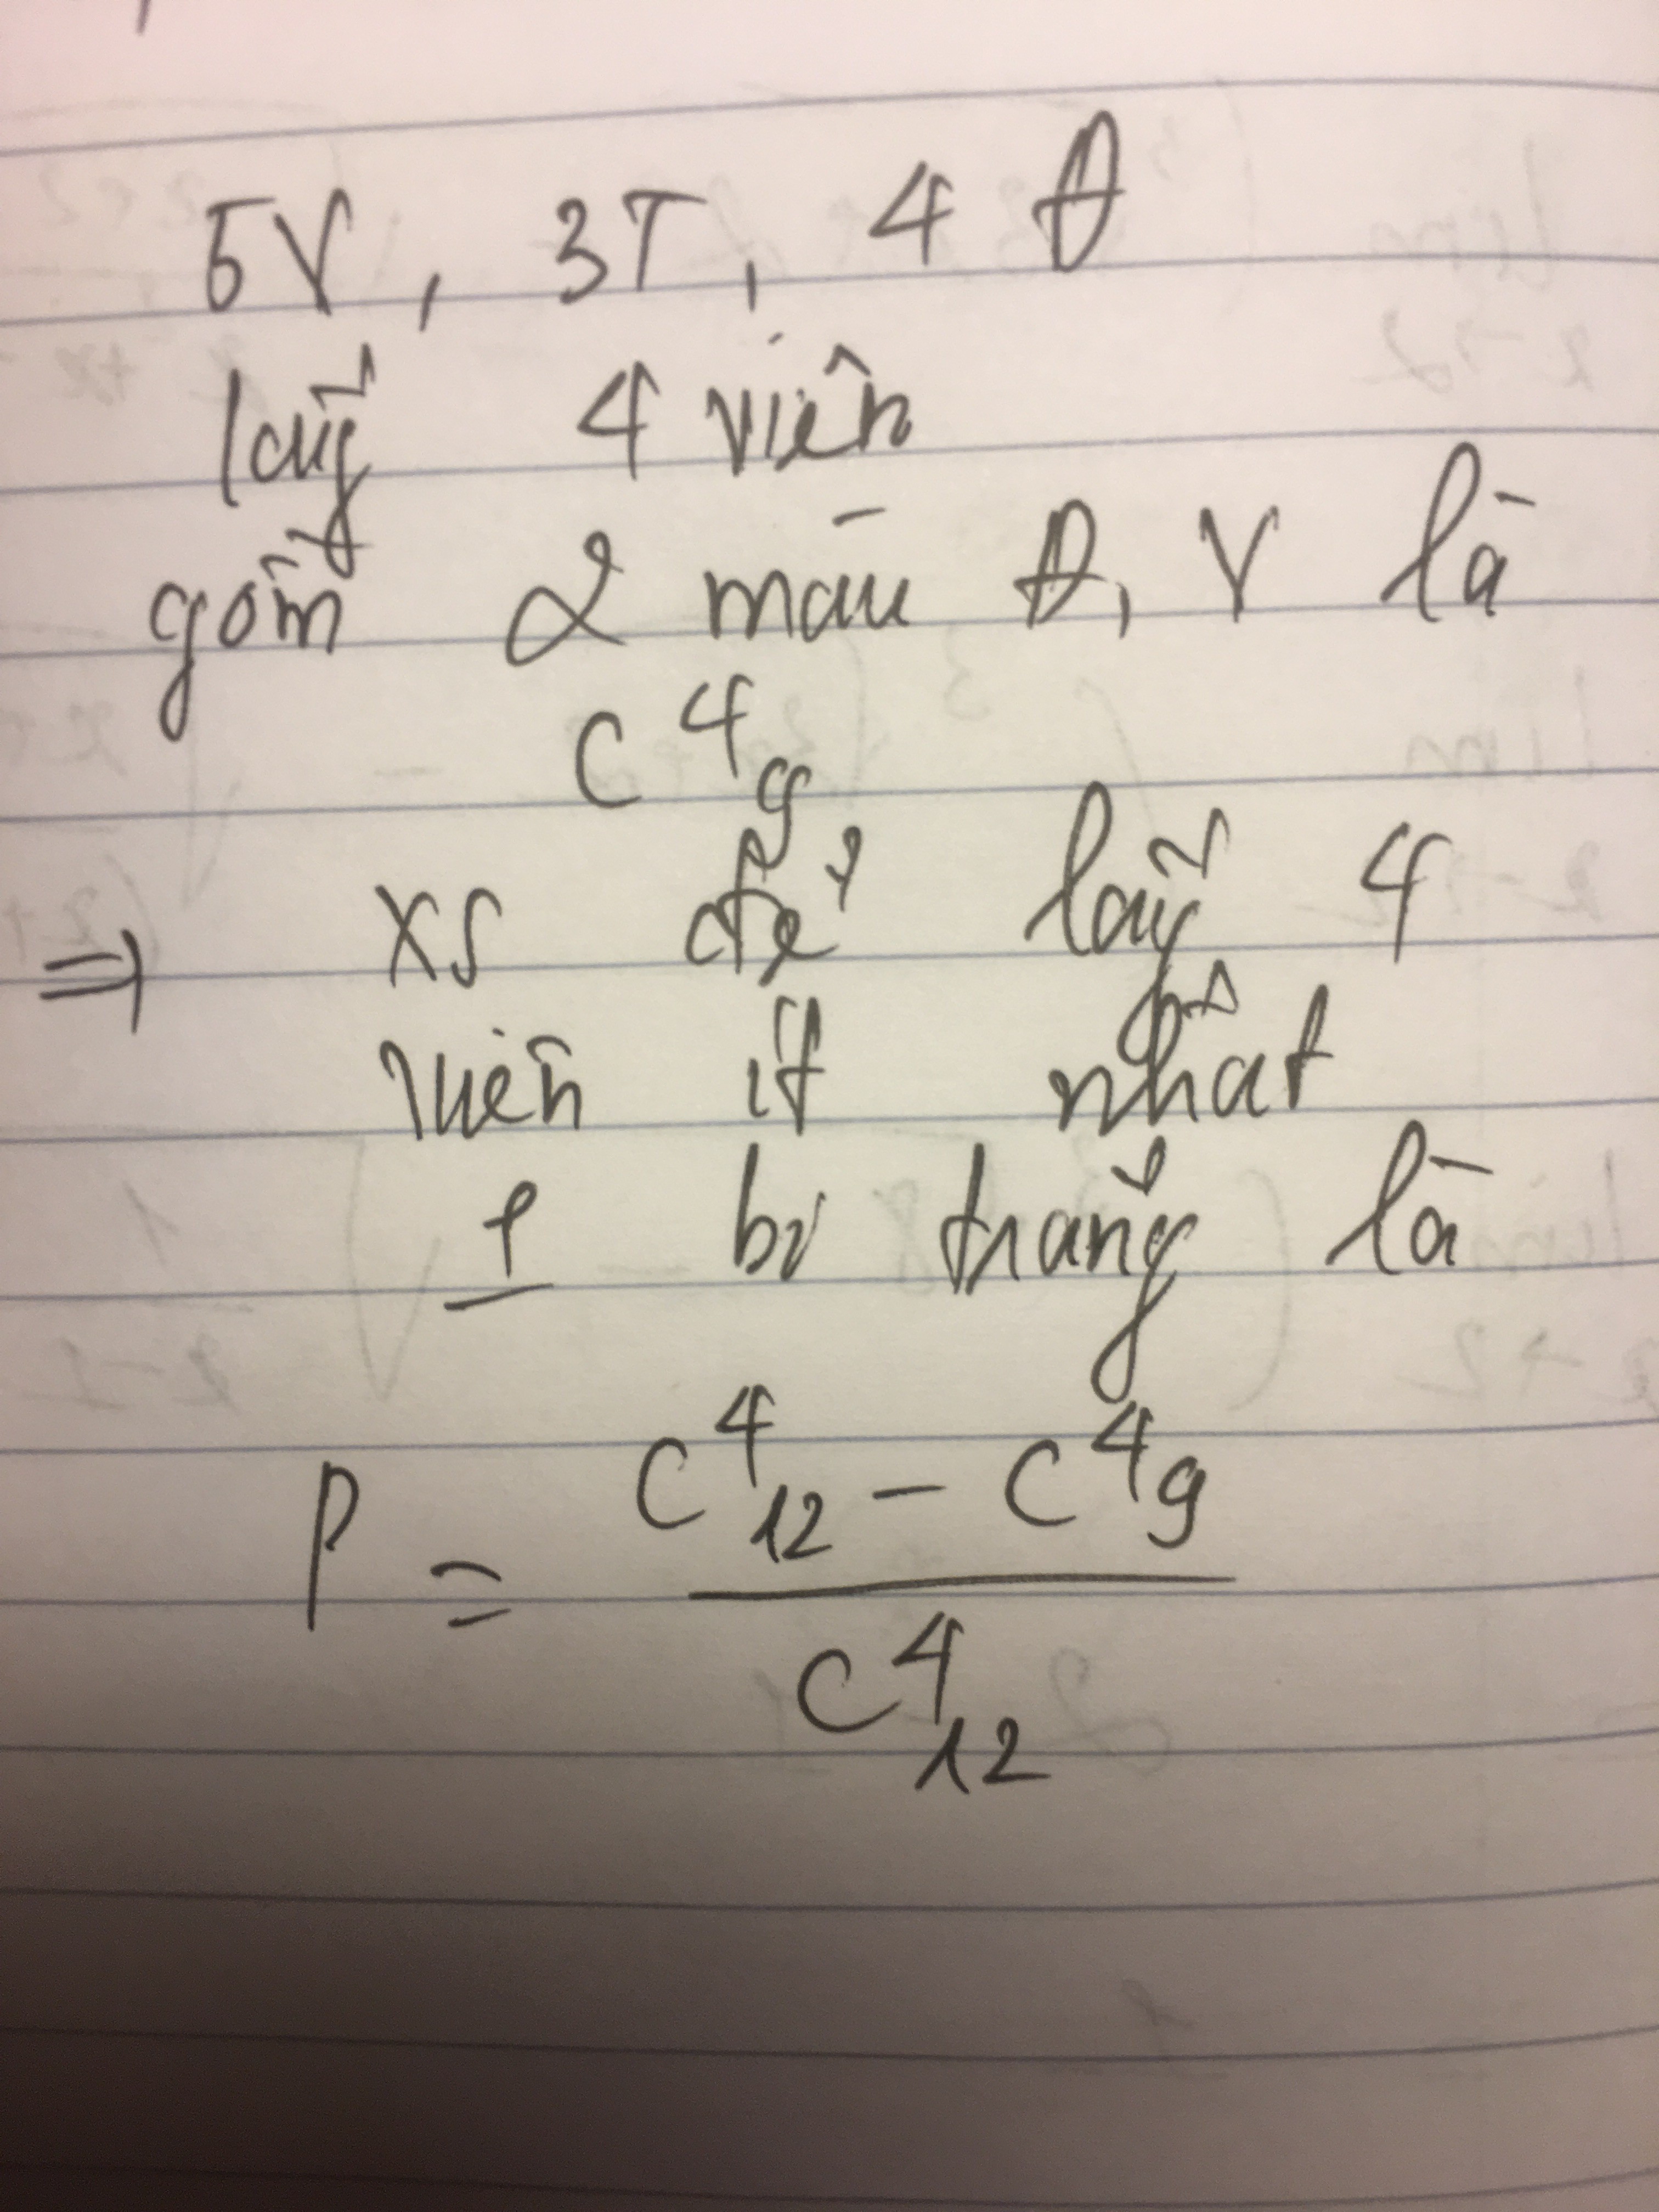 5V, 3T, 4 Đ
lấy 4 viên
gồm 2 màu Đ, V là
C⁴₉
=> XS để lấy 4
viên ít nhất
1 bi trắng là
P = (C⁴₁₂ - C⁴₉) / C⁴₁₂